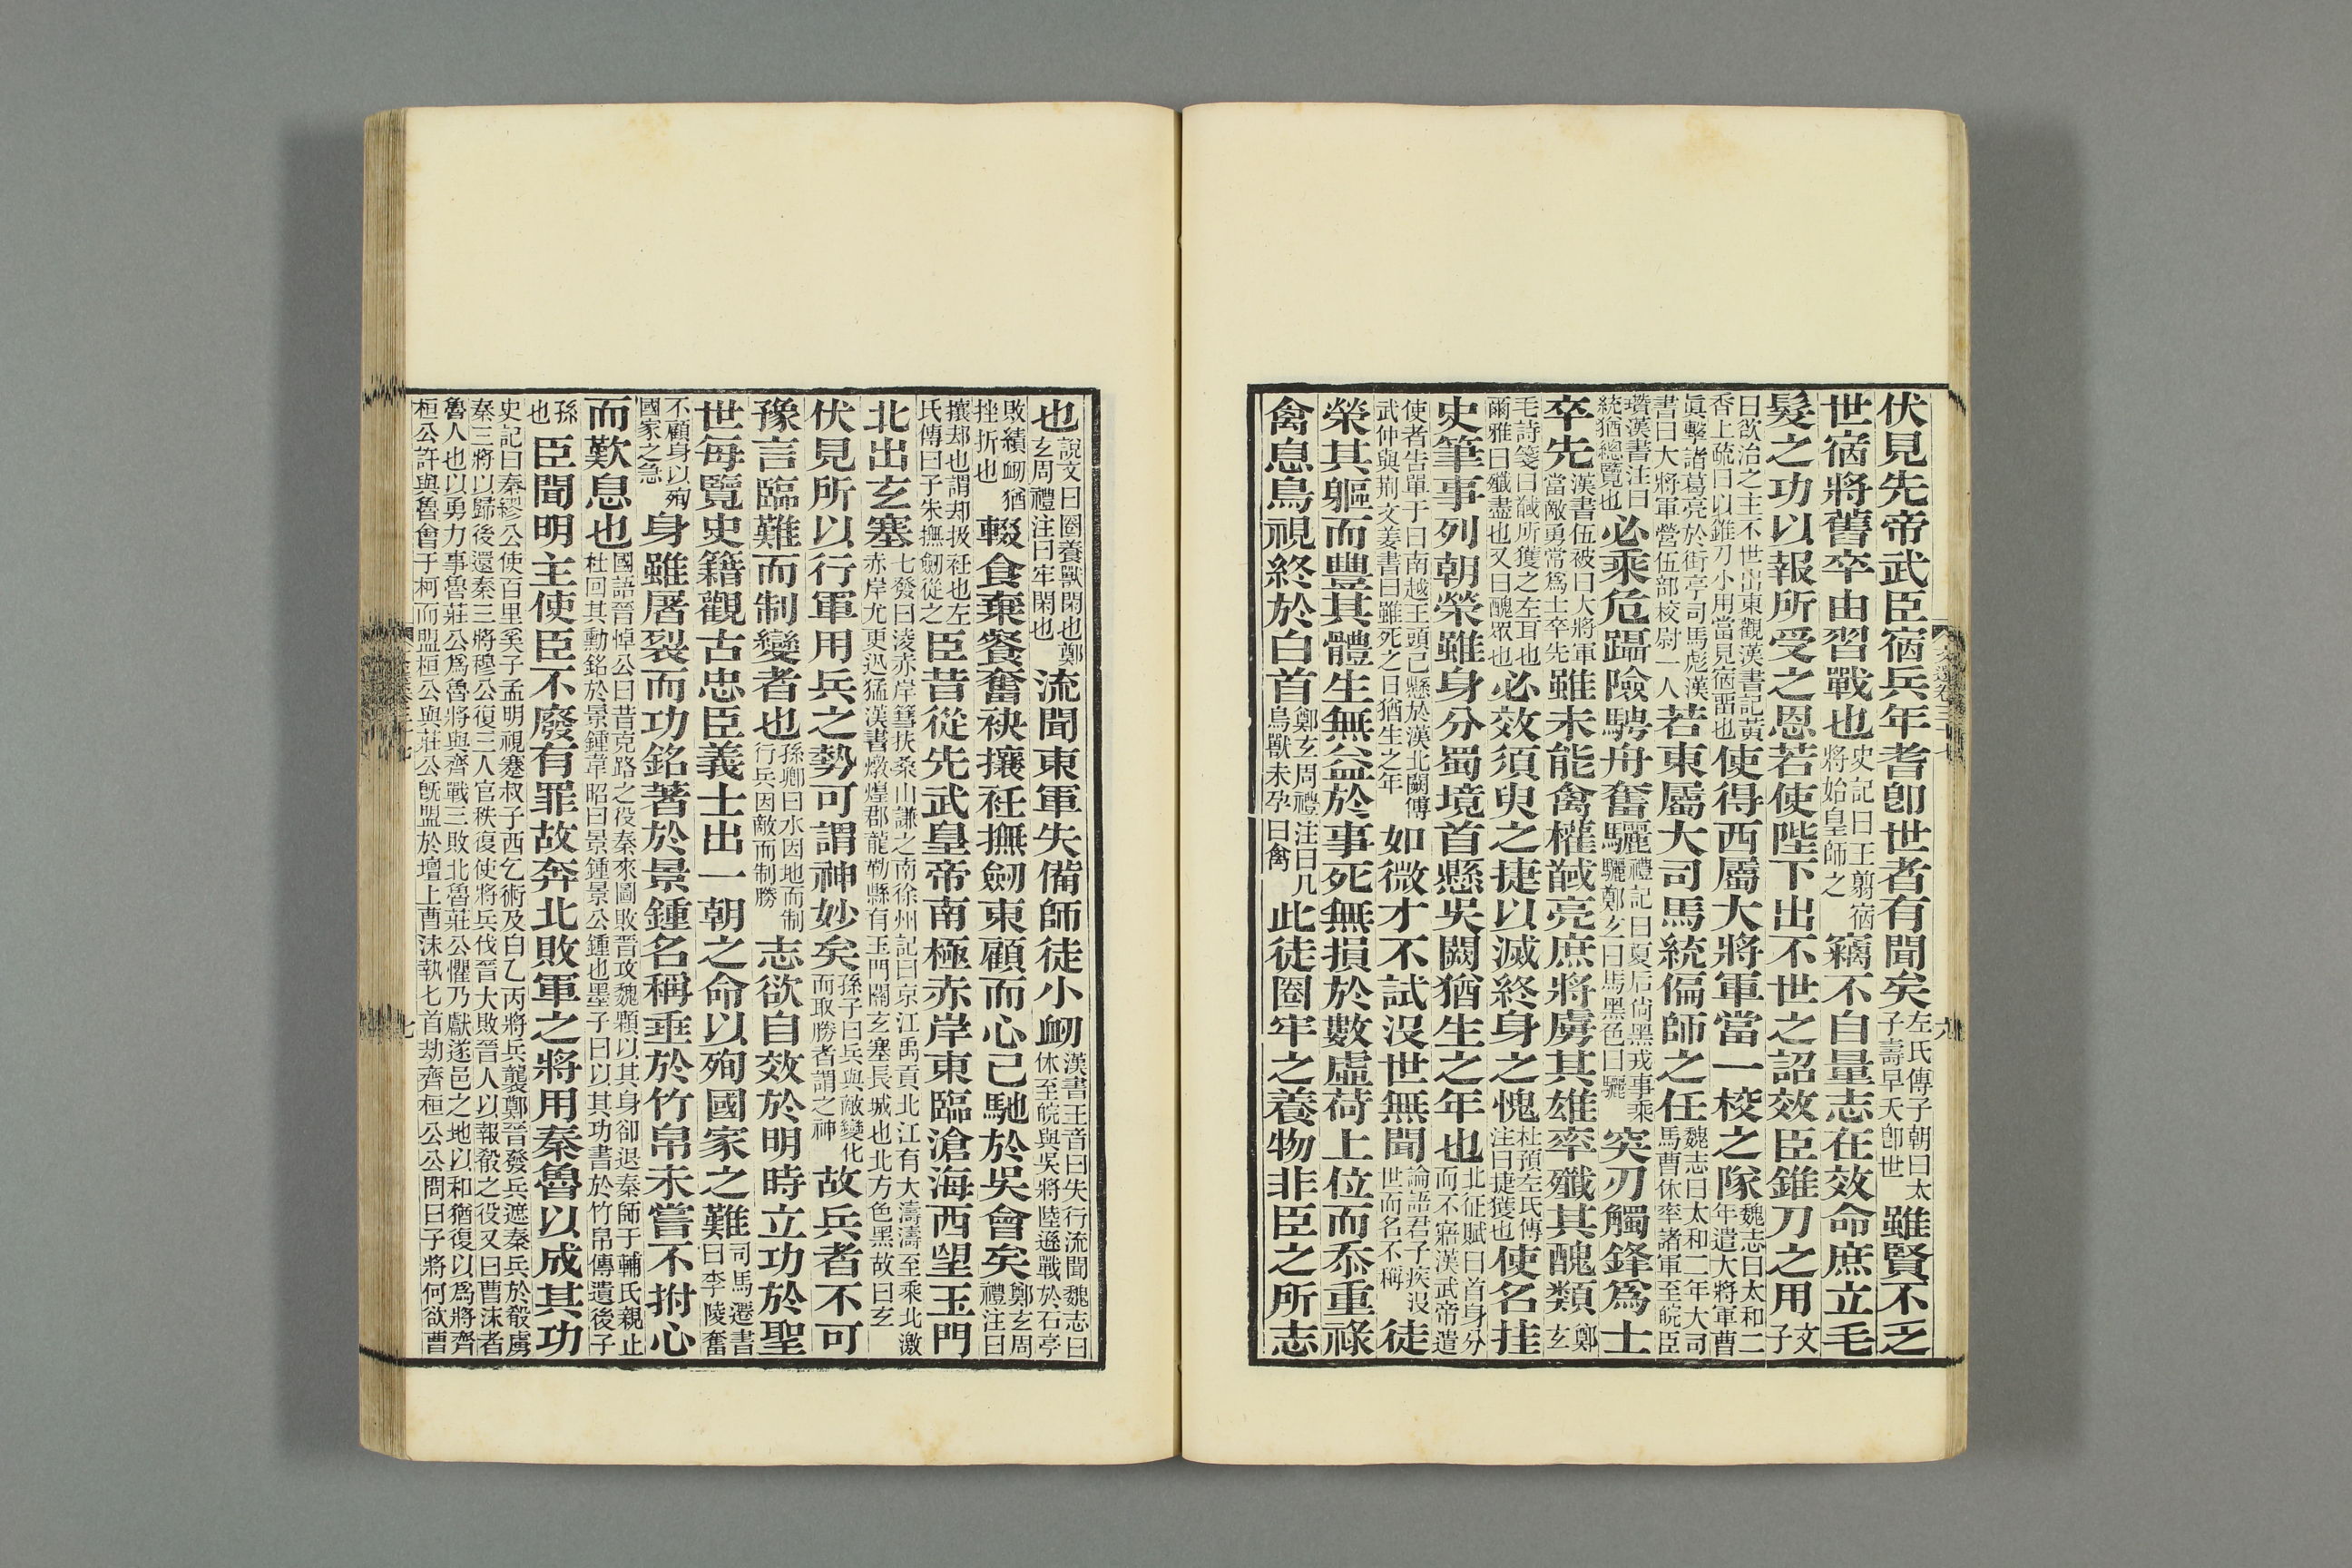 伏見先帝武臣宿兵年耆卽世者有聞矣左氏傳子朝曰太子壽早夭卽世雖賢不乏
世宿將舊卒由習戰也史記曰王翦宿將始皇師之竊不自量志在效命庶立毛
髮之功以報所受之恩若使陛下出不世之詔效臣錐刀之用文子
曰欲治之主不世出東觀漢書記黃香上疏曰以錐刀小用當見宿畱也使得西屬大將軍當一校之隊魏志曰太和二年遣大將軍曹
眞擊諸葛亮於街亭司馬彪漢書曰大將軍營伍部校尉一人若東屬大司馬統偏師之任魏志曰太和二年大司馬曹休率諸軍至皖臣
瓚漢書注曰統猶總覽也必乘危躡險騁舟奮驪禮記曰夏后尙黑戎事乘驪鄭玄曰馬黑色曰驪突刃觸鋒爲士
卒先漢書伍被曰大將軍當敵勇常爲士卒先雖未能禽權馘亮庶將虜其雄率殲其醜類鄭玄
毛詩箋曰馘所獲之左耳也爾雅曰殲盡也又曰醜眾也必效須臾之捷以滅終身之愧杜預左氏傳注曰捷獲也使名挂
史筆事列朝榮雖身分蜀境首懸吳闕猶生之年也北征賦曰首身分而不寤漢武帝遣
使者告單于曰南越王頭已懸於漢北闕傅武仲與荆文姜書曰雖死之日猶生之年如微才不試沒世無聞論語君子疾没世而名不稱徒
榮其軀而豐其體生無益於事死無損於數虛荷上位而忝重祿
禽息鳥視終於白首鄭玄周禮注曰凡鳥獸未孕曰禽此徒圈牢之養物非臣之所志
也說文曰圈養獸閑也鄭玄周禮注曰牢閑也流聞東軍失備師徒小衂漢書王音曰失行流聞魏志曰休至皖與吳將陸遜戰於石亭
敗績衂猶挫折也輟食棄餐奮袂攘衽撫劒東顧而心已馳於吳會矣鄭玄周禮注曰
攘却也謂却扱衽也左氏傳曰子朱撫劒從之臣昔從先武皇帝南極赤岸東臨滄海西望玉門
北出玄塞七發曰淩赤岸篲扶桑山謙之南徐州記曰京江禹貢北江有大濤濤至乘北激赤岸尤更迅猛漢書燉煌郡龍勒縣有玉門關玄塞長城也北方色黑故曰玄
伏見所以行軍用兵之勢可謂神妙矣孫子曰兵與敵變化而取勝者謂之神故兵者不可
豫言臨難而制變者也孫卿曰水因地而制行兵因敵而制勝志欲自效於明時立功於聖
世每覽史籍觀古忠臣義士出一朝之命以殉國家之難司馬遷書曰李陵奮
不顧身以殉國家之急身雖屠裂而功銘著於景鍾名稱垂於竹帛未嘗不拊心
而歎息也國語晉悼公曰昔克路之役秦來圖敗晉攻魏顆以其身卻退秦師于輔氏親止杜回其勳銘於景鍾韋昭曰景鍾景公鍾也墨子曰以其功書於竹帛傳遺後子
孫也臣聞明主使臣不廢有罪故奔北敗軍之將用秦魯以成其功
史記曰秦繆公使百里奚子孟明視蹇叔子西乞術及白乙丙將兵襲鄭晉發兵遮秦兵於殽虜秦三將以歸後還秦三將穆公復三人官秩復使將兵伐晉大敗晉人以報殽之役又曰曹沫者
魯人也以勇力事魯莊公爲魯將與齊戰三敗北魯莊公懼乃獻遂邑之地以和猶復以爲將齊桓公許與魯會于柯而盟桓公與莊公旣盟於壇上曹沫執匕首劫齊桓公公問曰子將何欲曹